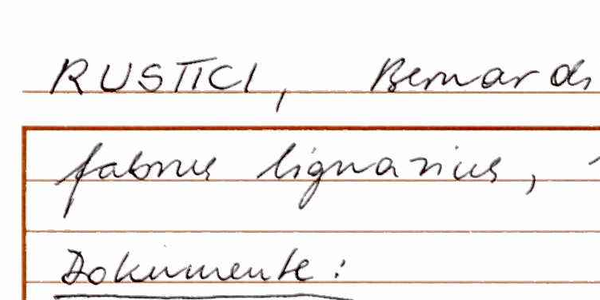 RUSTICI, Bernardo
fabrus lignarius,
Dokumente: